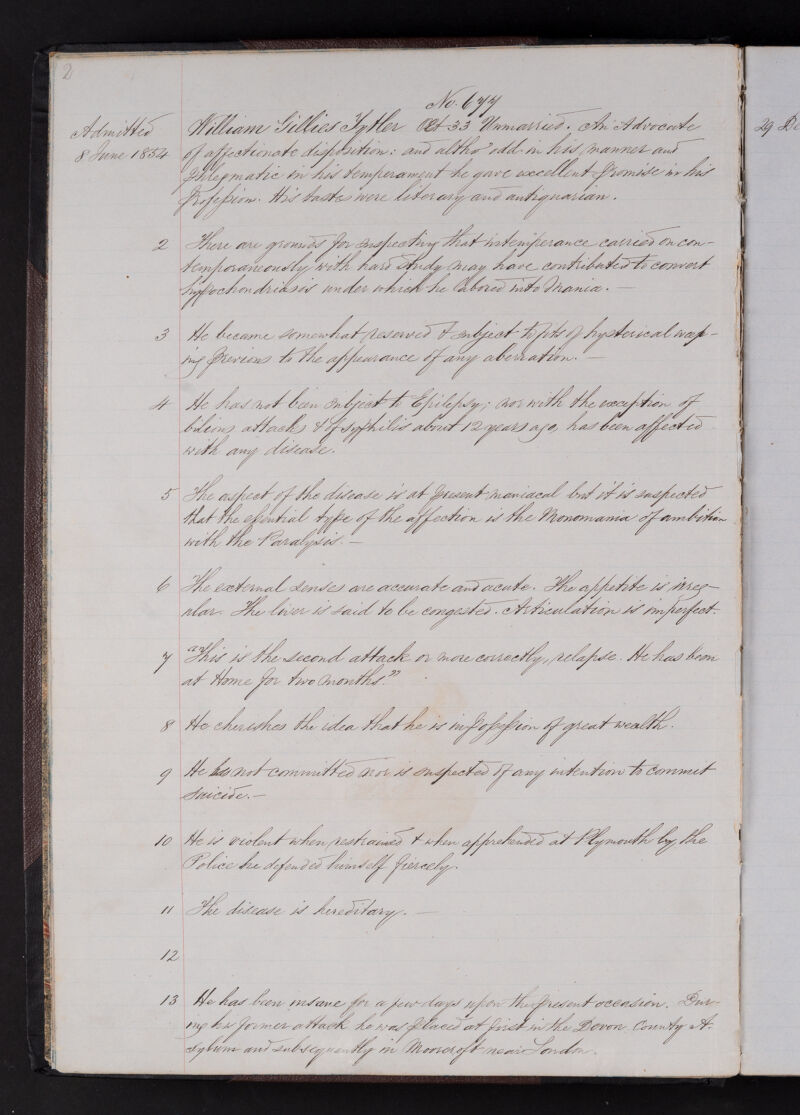 2
No. 677
Admitted
8 June 1854
William Gillies Tytler Æt 33 Unmarried. An Advocate
of affectionate disposition: and altho' odd in his manner and
phlegmatic in his temperament he gave excellent promise in his
profession. His taste were literary and antiquarian.
2 There are grounds for suspecting that intemperance carried on con-
temporaneously with hard study may have contributed to convert
hypochondriasis under which he labored into Mania. —
3 He became somewhat reserved & subject to fits of hysterical weep-
ing previous to the appearance of any aberration. —
4 He has not been subject to Epilepsy; nor with the exception of
bilious attacks & of syphilis about 12 years ago, has been affected
with any disease.
5 The aspect of the disease is at present maniacal but it is suspected
that the essential type of the affection is the Monomania of ambition
with the Paralysis. —
6 The external senses are accurate and acute. The appetite is irreg-
ular. The liver is said to be congested. Articulation is imperfect.
7 "This is the second attack or more correctly, relapse. He has been
at Home for two months."
8 He cherishes the idea that he is in possession of great wealth.
9 He has not committed nor is suspected of any intention to commit
suicide. —
10 He is violent when restrained & when apprehended at Plymouth by the
Police he defended himself fiercely.
11 The disease is hereditary. —
12
13 He has been insane for a few days upon the present occasion. Dur-
ing his former attack he was placed at first in the Devon County A-
sylum and subsequently in Moorcroft near London.
29 De